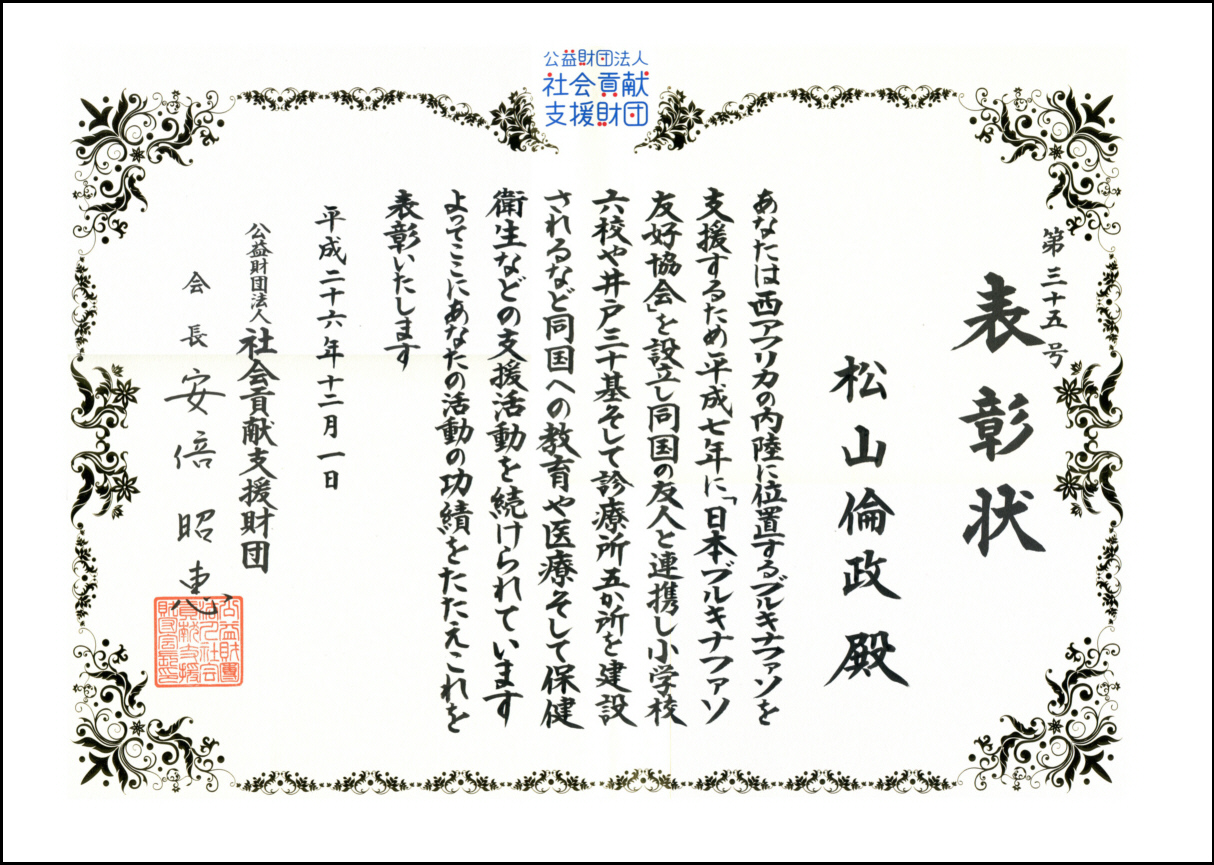 公益財団法人
社会貢献
支援財団
第三十五号
表彰状
松山倫政殿
あなたは西アフリカの内陸に位置するブルキナファソを
支援するため平成七年に「日本ブルキナファソ
友好協会」を設立し同国の友人と連携し小学校
六校や井戸三十基そして診療所五か所を建設
されるなど同国への教育や医療そして保健
衛生などの支援活動を続けられています
よってここにあなたの活動の功績をたたえこれを
表彰いたします
平成二十六年十二月一日
公益財団法人 社会貢献支援財団
会長 安倍昭恵